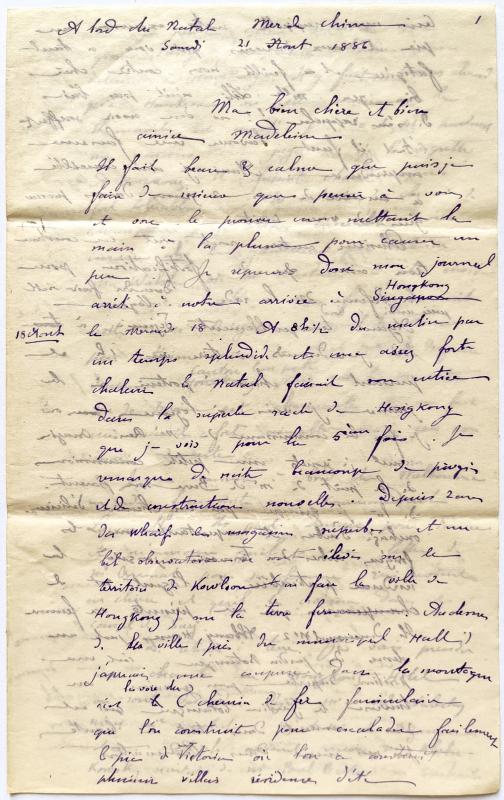 1
A bord du Natal Mer de Chine
Samedi 21 Août 1886
Ma bien chère et bien
aimée Madeleine
Il fait beau & calme que puis je
faire de mieux que penser à vous
et me le prouver en mettant la
main à la plume pour causer un
peu. Je reprends donc mon journal
arrêté à notre arrivée à Singapore
Hongkong
18 Août
le mercredi 18 A 8h½ du matin par
un temps splendide et une assez forte
chaleur le Natal faisait son entrée
dans la superbe rade de Hongkong
que je vois pour la 5ème fois. Je
remarque de suite beaucoup de progrès
et de constructions nouvelles. Depuis 2 ans
des wharfs des magasins superbes et un
bel observatoire se sont élevés sur le
territoire de Kowloon (en face la ville de
Hongkong) sur la terre ferme Au dessus
de la ville (près du municipal Hall)
j'aperçois une coupure dans la montagne
la voie du
c'est le chemin de fer funiculaire
que l'on construit pour escalader facilement
le pic de Victoria où l'on a construit
plusieurs villas résidences d'été